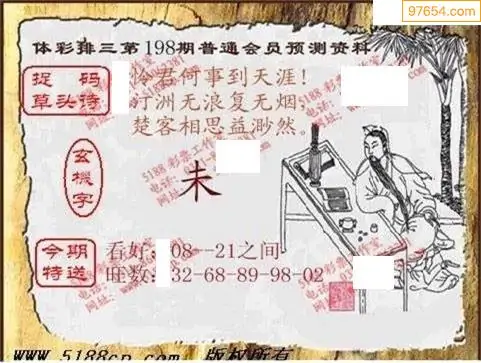 97654.com
体彩排三第198期普通会员预测资料
捉 码
草头诗
怜君何事到天涯!
汀洲无浪复无烟,
楚客相思益渺然。
玄機字
未
今期
特送
看好:08--21之间
旺数:32-68-89-98-02
5188 彩票工作室
www.5188cp.com 版权所有